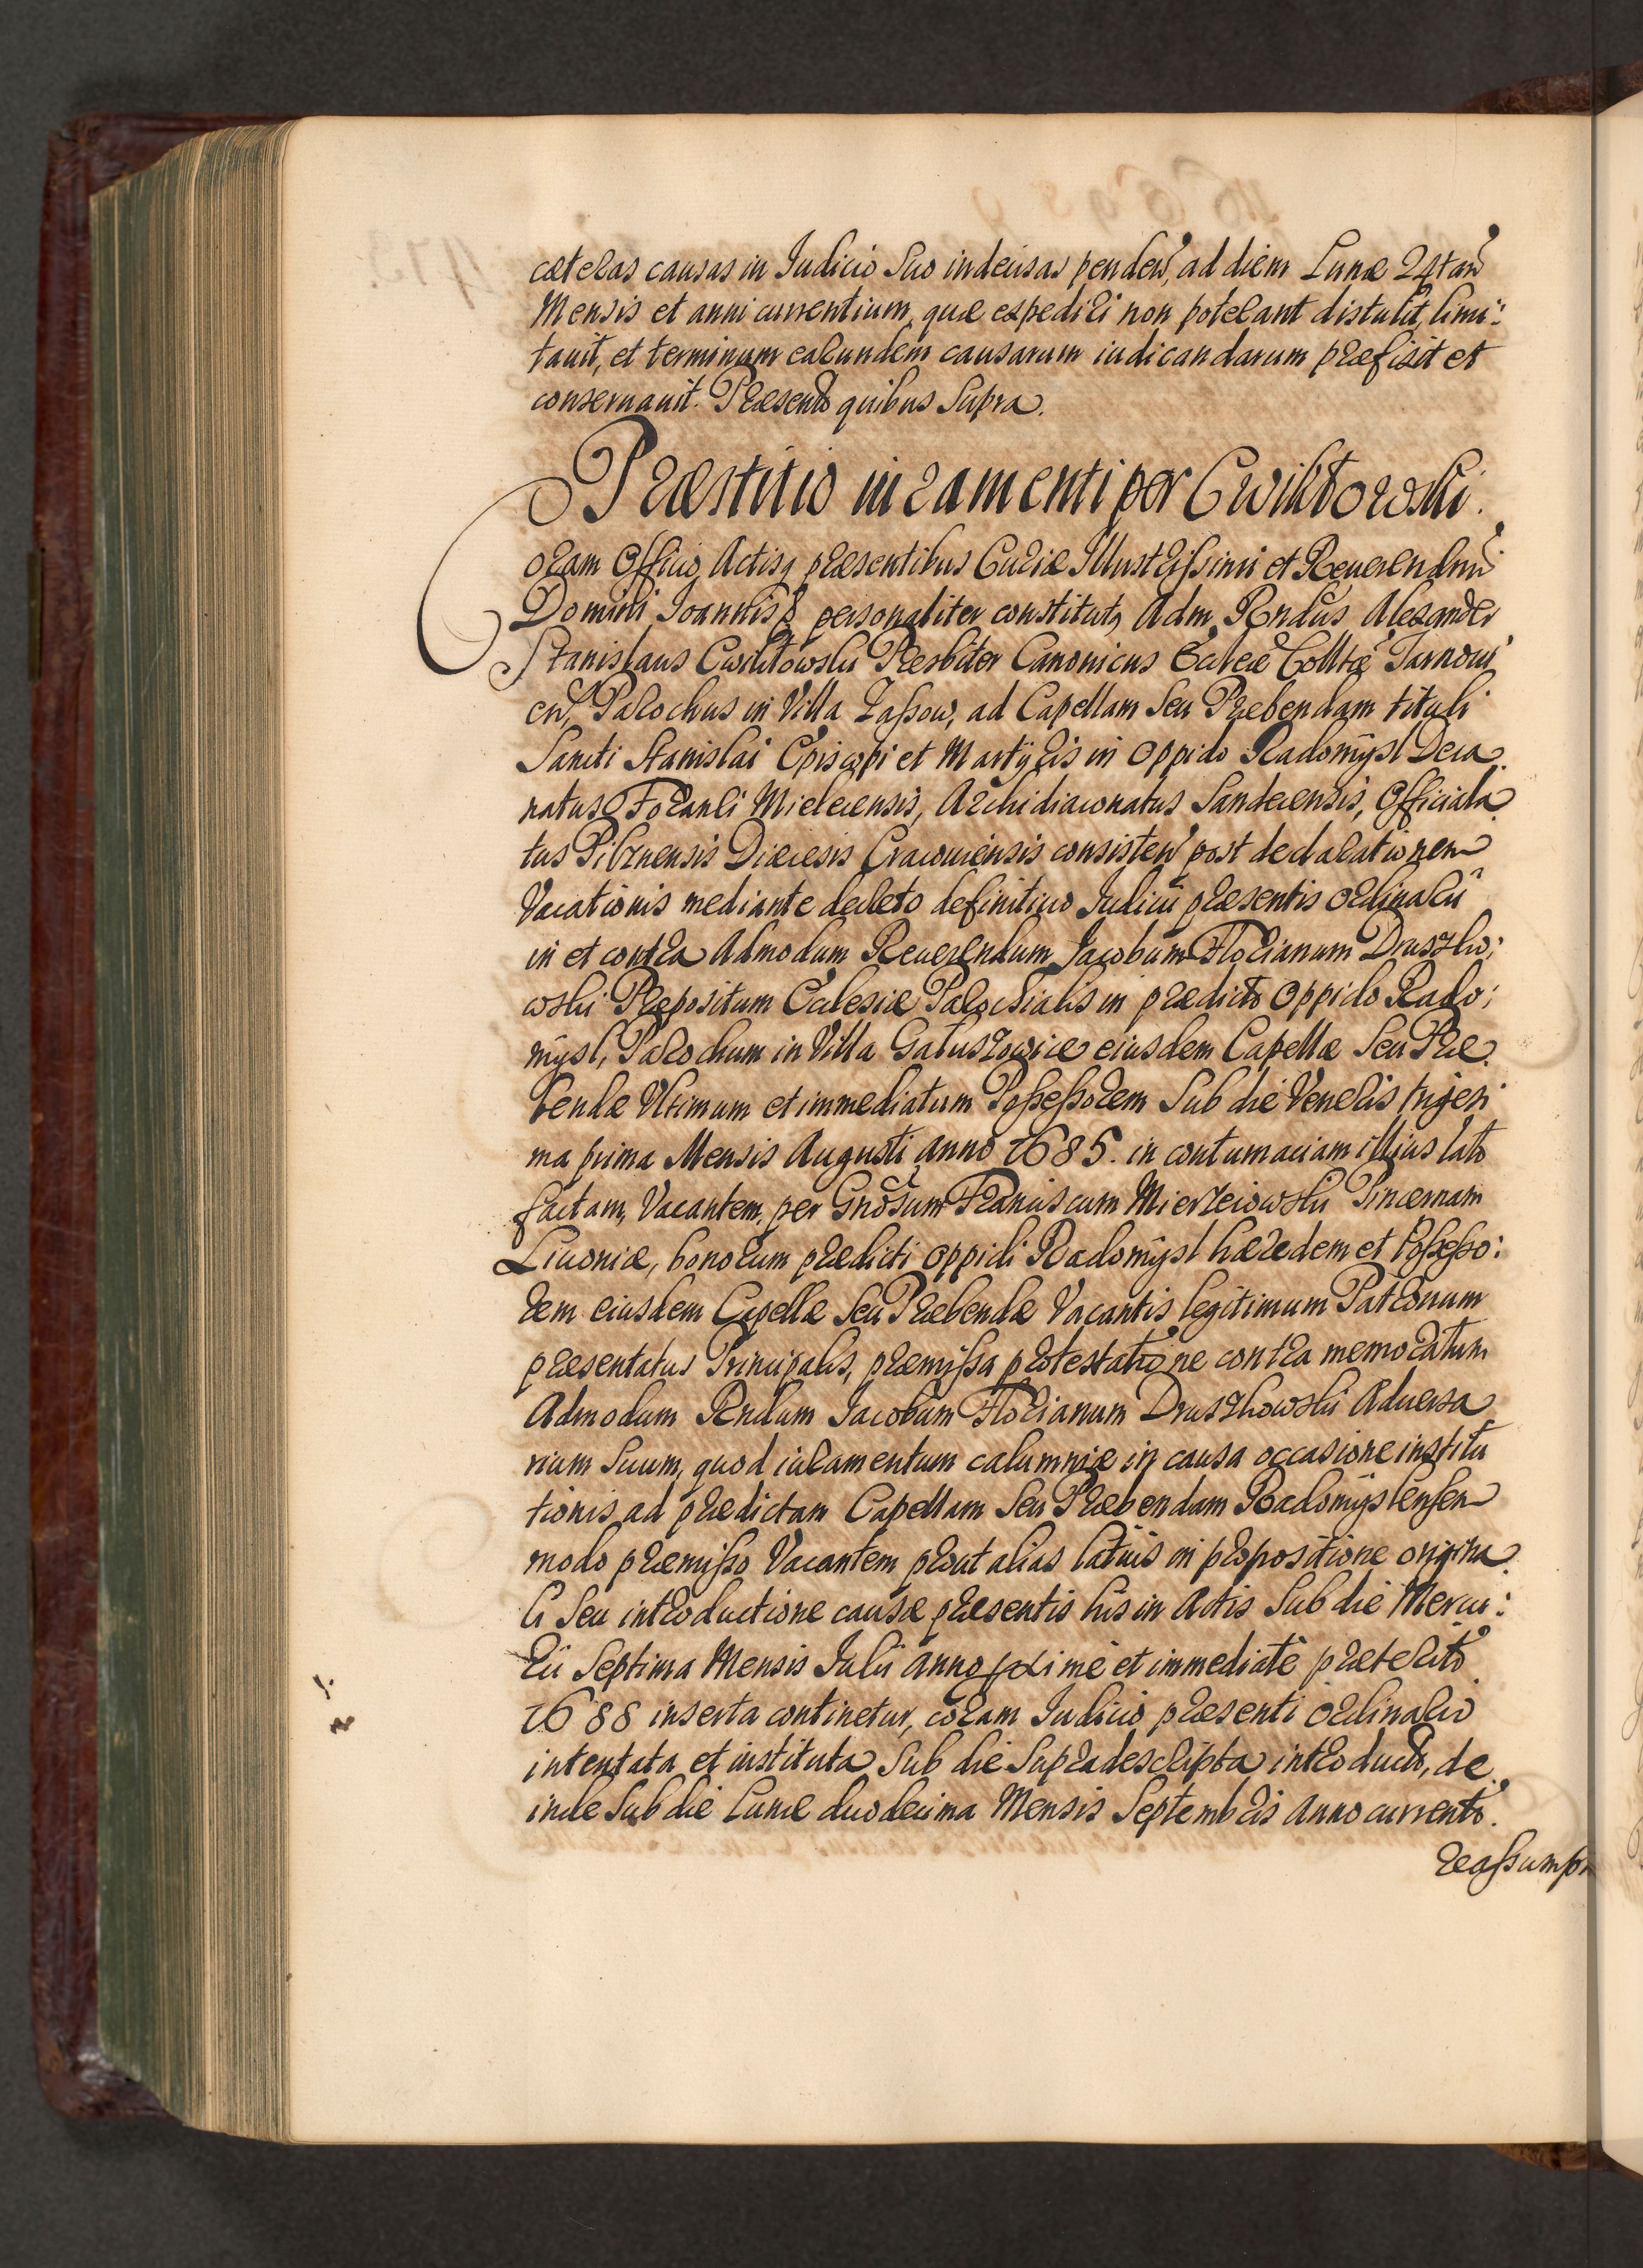 cæteras causas in Iudicio Suo indecisas penden, ad diem Lunæ 24tam
Mensis et anni currentium, quæ expediri non poterant distulit, limi:
tauit, et terminum earundem causarum iudicandarum præfixit et
conseruauit. Præsent quibus Supra.
Præstitio iuramenti per Cwiklowski.
Coram Officio Actisq præsentibus Curiæ Illustrissimi et Reuerendmi
Domini Ioannis personaliter constitutq Adm Rndus Alexander
Stanislaus Cwiklowski Presbiter Canonicus Eccleæ Colltæ Tarnoui
en, Parochus in Villa Zassow, ad Capellam Seu Præbendam tituli
Sancti Stanislai Episcopi et Martyris in Oppido Radomysl Deca
natus Foranei Mielecensis, Archidiaconatus Sandecensis, Officiala
tus Pilznensis Diæcesis Cracouiensis consisten post declarationem
Vacationis mediante decreto definitiuo Iudicii præsentis Ordinarii
in et contra Admodum Reuerendum Jacobum Florianum Druszko:
wski Præpositum Ecclesiæ Parochialis in prædicto Oppido Rado:
mysl, Parochum in Villa Galuszowice eiusdem Capellæ Seu Præ
bendæ Vltimum et immediatum Possessorem Sub die Veneris trigesi
ma prima Mensis Augusti Anno 1685. in contumaciam illius lato
factam, Vacantem, per Gnosum Franciscum Mierzeiowski Pincernam
Liuoniæ, bonorum prædicti Oppidi Radomysl hæredem et Possesso:
rem eiusdem Capellæ Seu Præbendæ Vacantis legitimum Patronum
præsentatus Principalis, præmissa protestatione contra memoratum
Admodum Rndum Iacobum Florianum Druszkowski Aduersa
rium Suum, quod iuramentum calumniæ in causa occasione institu
tionis ad prædictam Capellam Seu Præbendam Radomyslensem
modo præmisso Vacantem prout alias latius in propositione origina
li Seu introductione causæ præsentis his in Actis Sub die Mercu:
rii Septima Mensis Iulii Anno proxime et immediate præterito
1688 inserta continetur, coram Iudicio præsenti Ordinario
intentata et instituta Sub die Supradescripta introducta, de
inde Sub die Lunæ duodecima Mensis Septembris Anno currento.